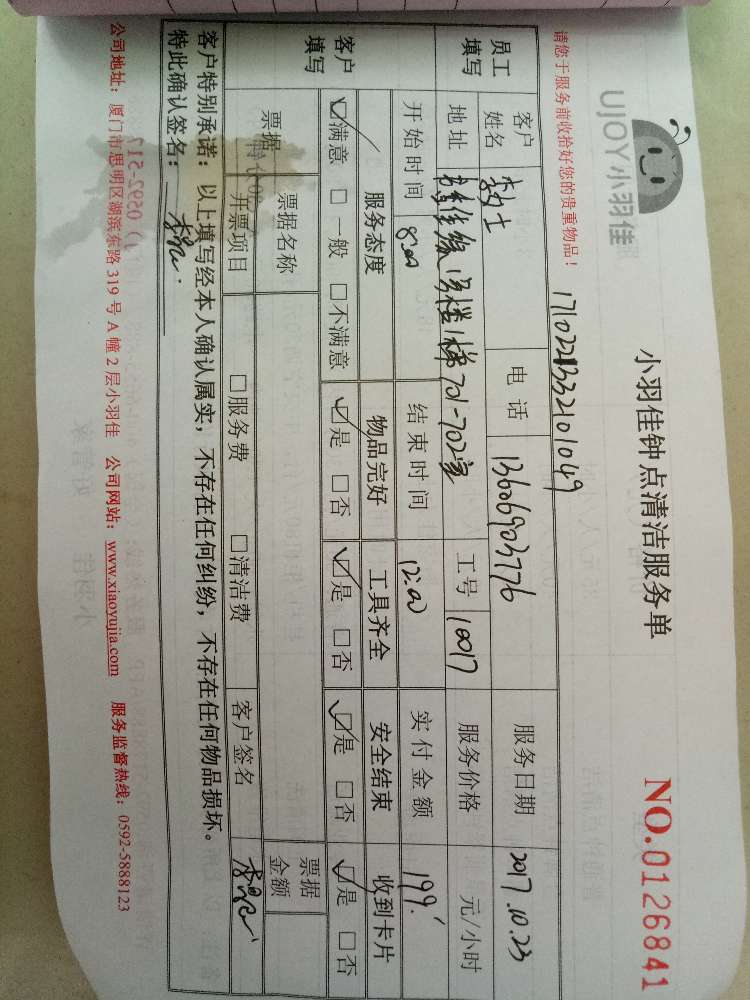 UJOY小羽佳
小羽佳钟点清洁服务单
NO.0126841
请您于服务前收拾好您的贵重物品!
1710221332101049
员工填写
客户姓名 李女士 电话 13606903776 服务日期 2017.10.23
地址 1号楼1梯701-702室 工号 10017 服务价格 元/小时
开始时间 8:00 结束时间 12:00 实付金额 199.
客户填写
服务态度 物品完好 工具齐全 安全结束 收到卡片
☑满意 □一般 □不满意 ☑是 □否 ☑是 □否 ☑是 □否 ☑是 □否
票据 票据名称 票据金额
开票项目 □服务费 □清洁费 客户签名
客户特别承诺:以上填写经本人确认属实,不存在任何纠纷,不存在任何物品损坏。
特此确认签名:
公司地址:厦门市思明区湖滨东路319号A幢2层小羽佳 公司网站:www.xiaoyujia.com 服务监督热线:0592-5888123